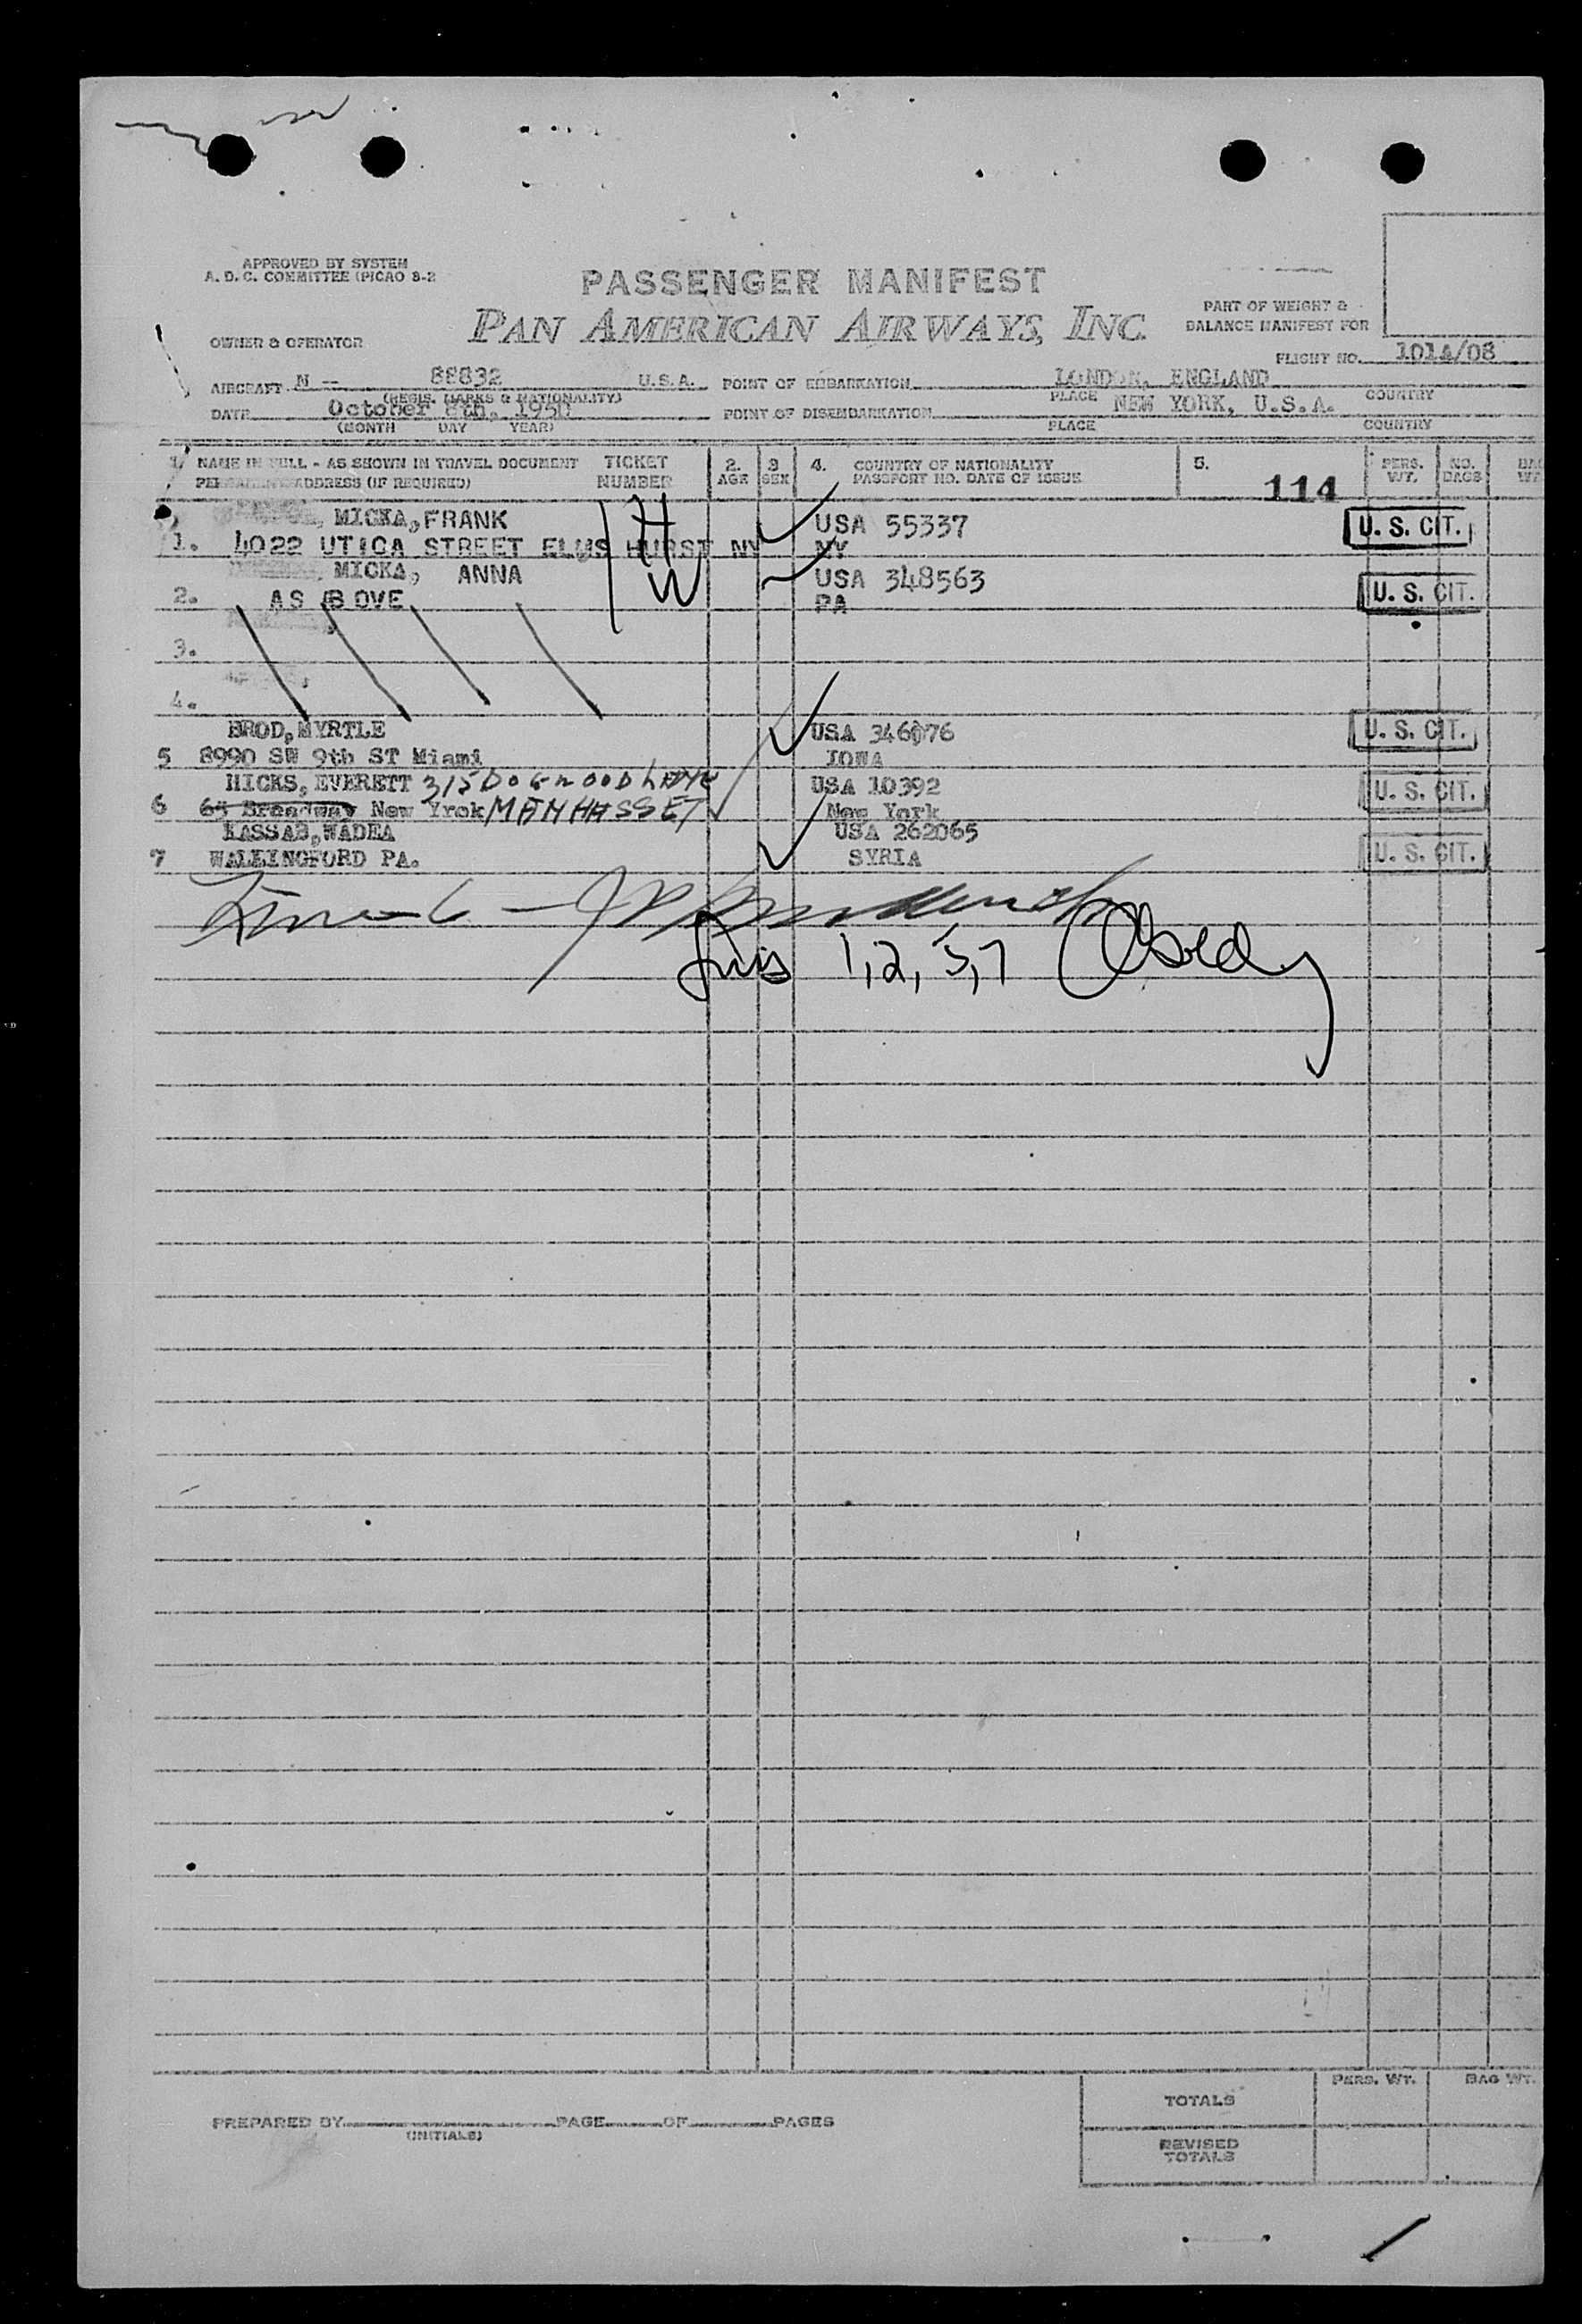 APPROVED BY SYSTEM
A. D. C. COMMITTEE (PICAO 8-2
PASSENGER MANIFEST
PAN AMERICAN AIRWAYS, INC.
PART OF WEIGHT &
BALANCE MANIFEST FOR
OWNER & OPERATOR
FLIGHT NO. 101A/08
AIRCRAFT N -- 88832 U.S.A. POINT OF EMBARKATION LONDON, ENGLAND
(REGIS. MARKS & NATIONALITY) PLACE COUNTRY
DATE October 8th, 1950 POINT OF DISEMBARKATION NEW YORK, U.S.A.
(MONTH DAY YEAR) PLACE COUNTRY
1. NAME IN FULL - AS SHOWN IN TRAVEL DOCUMENT TICKET 2. 3 4. COUNTRY OF NATIONALITY 5. PERS. NO. BAG
PERMANENT ADDRESS (IF REQUIRED) NUMBER AGE SEX PASSPORT NO. DATE OF ISSUE 114 WT. BAGS WT
MICKA, FRANK H USA 55337 U. S. CIT.
1. 4022 UTICA STREET ELMS HURST NY NY
MICKA, ANNA W USA 348563 U. S. CIT.
2. AS B OVE PA
3.
4.
BROD, MYRTLE USA 346076 U. S. CIT.
5 8990 SW 9th ST Miami IOWA
HICKS, EVERETT 315 DOGWOOD LANE USA 10392 U. S. CIT.
6 65 Broadway New Yrok MANHASSET New York
KASSAB, WADEA USA 262065 U. S. CIT.
7 WALLINGFORD PA. SYRIA
1, 2, 5, 7
PREPARED BY PAGE OF PAGES
(INITIALS)
PERS. WT. BAG WT.
TOTALS
REVISED
TOTALS